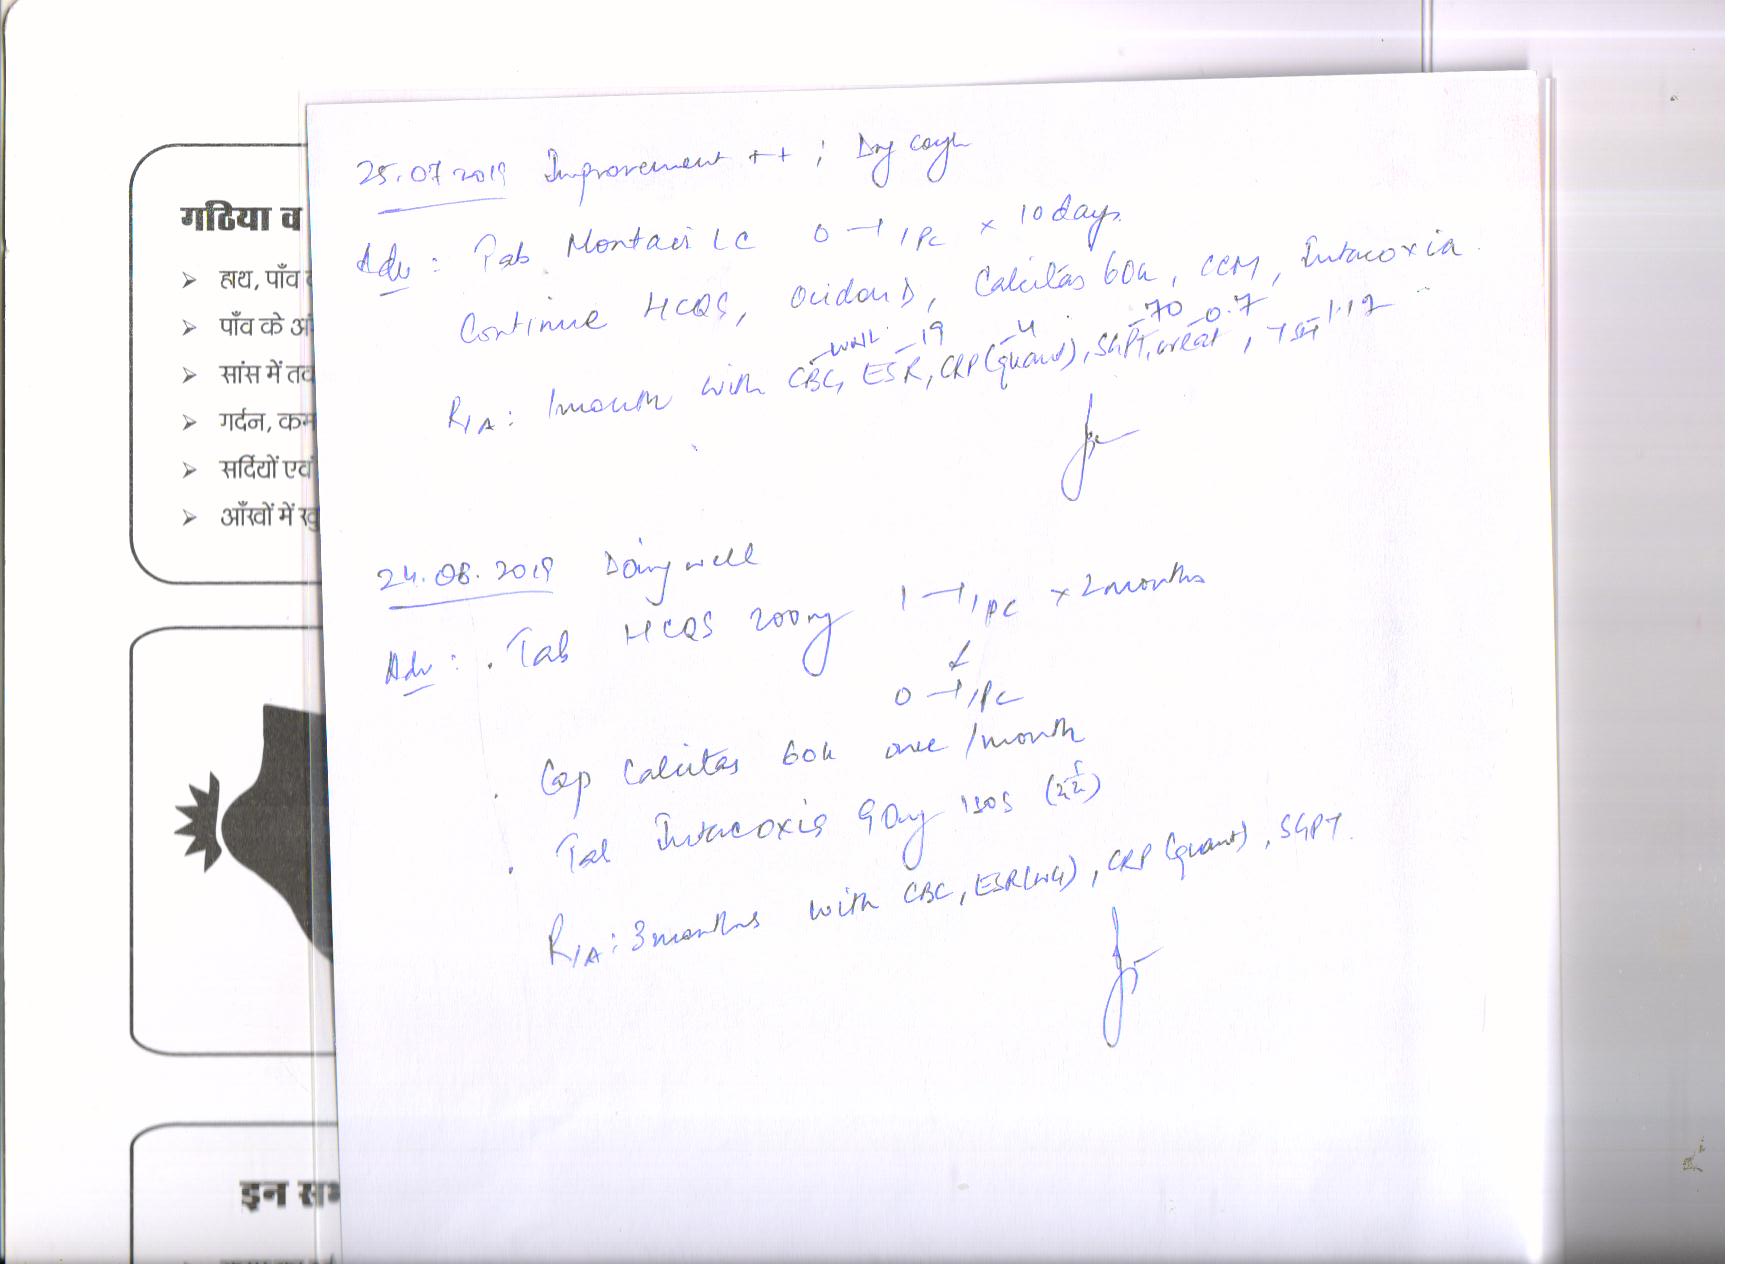 गठिया व
हाथ, पाँव
पाँव के
सांस में
गर्दन,
सर्दियों एवं
आँखों में
इन
25.07 2019 Improvement ++ ; Dry cough
Adv : Tab Montair LC 0 –| 1 PC × 10 days
Continue HCQS, D, Calcitas 60k, CCM, Intacoxia
WNL 19 4 70 0.7 1.12
R/A : 1 month with CBC, ESR, CRP (quant), SGPT, creat,
24.08.2019 Doing well
Adv : . Tab HCQS 200mg 1 –| 1 PC × 2 months
↓
0 –| 1 PC
. Cap Calcitas 60k once /month
. Tab Intacoxia 90mg SOS
R/A : 3 months with CBC, ESR (WG), CRP (quant), SGPT.